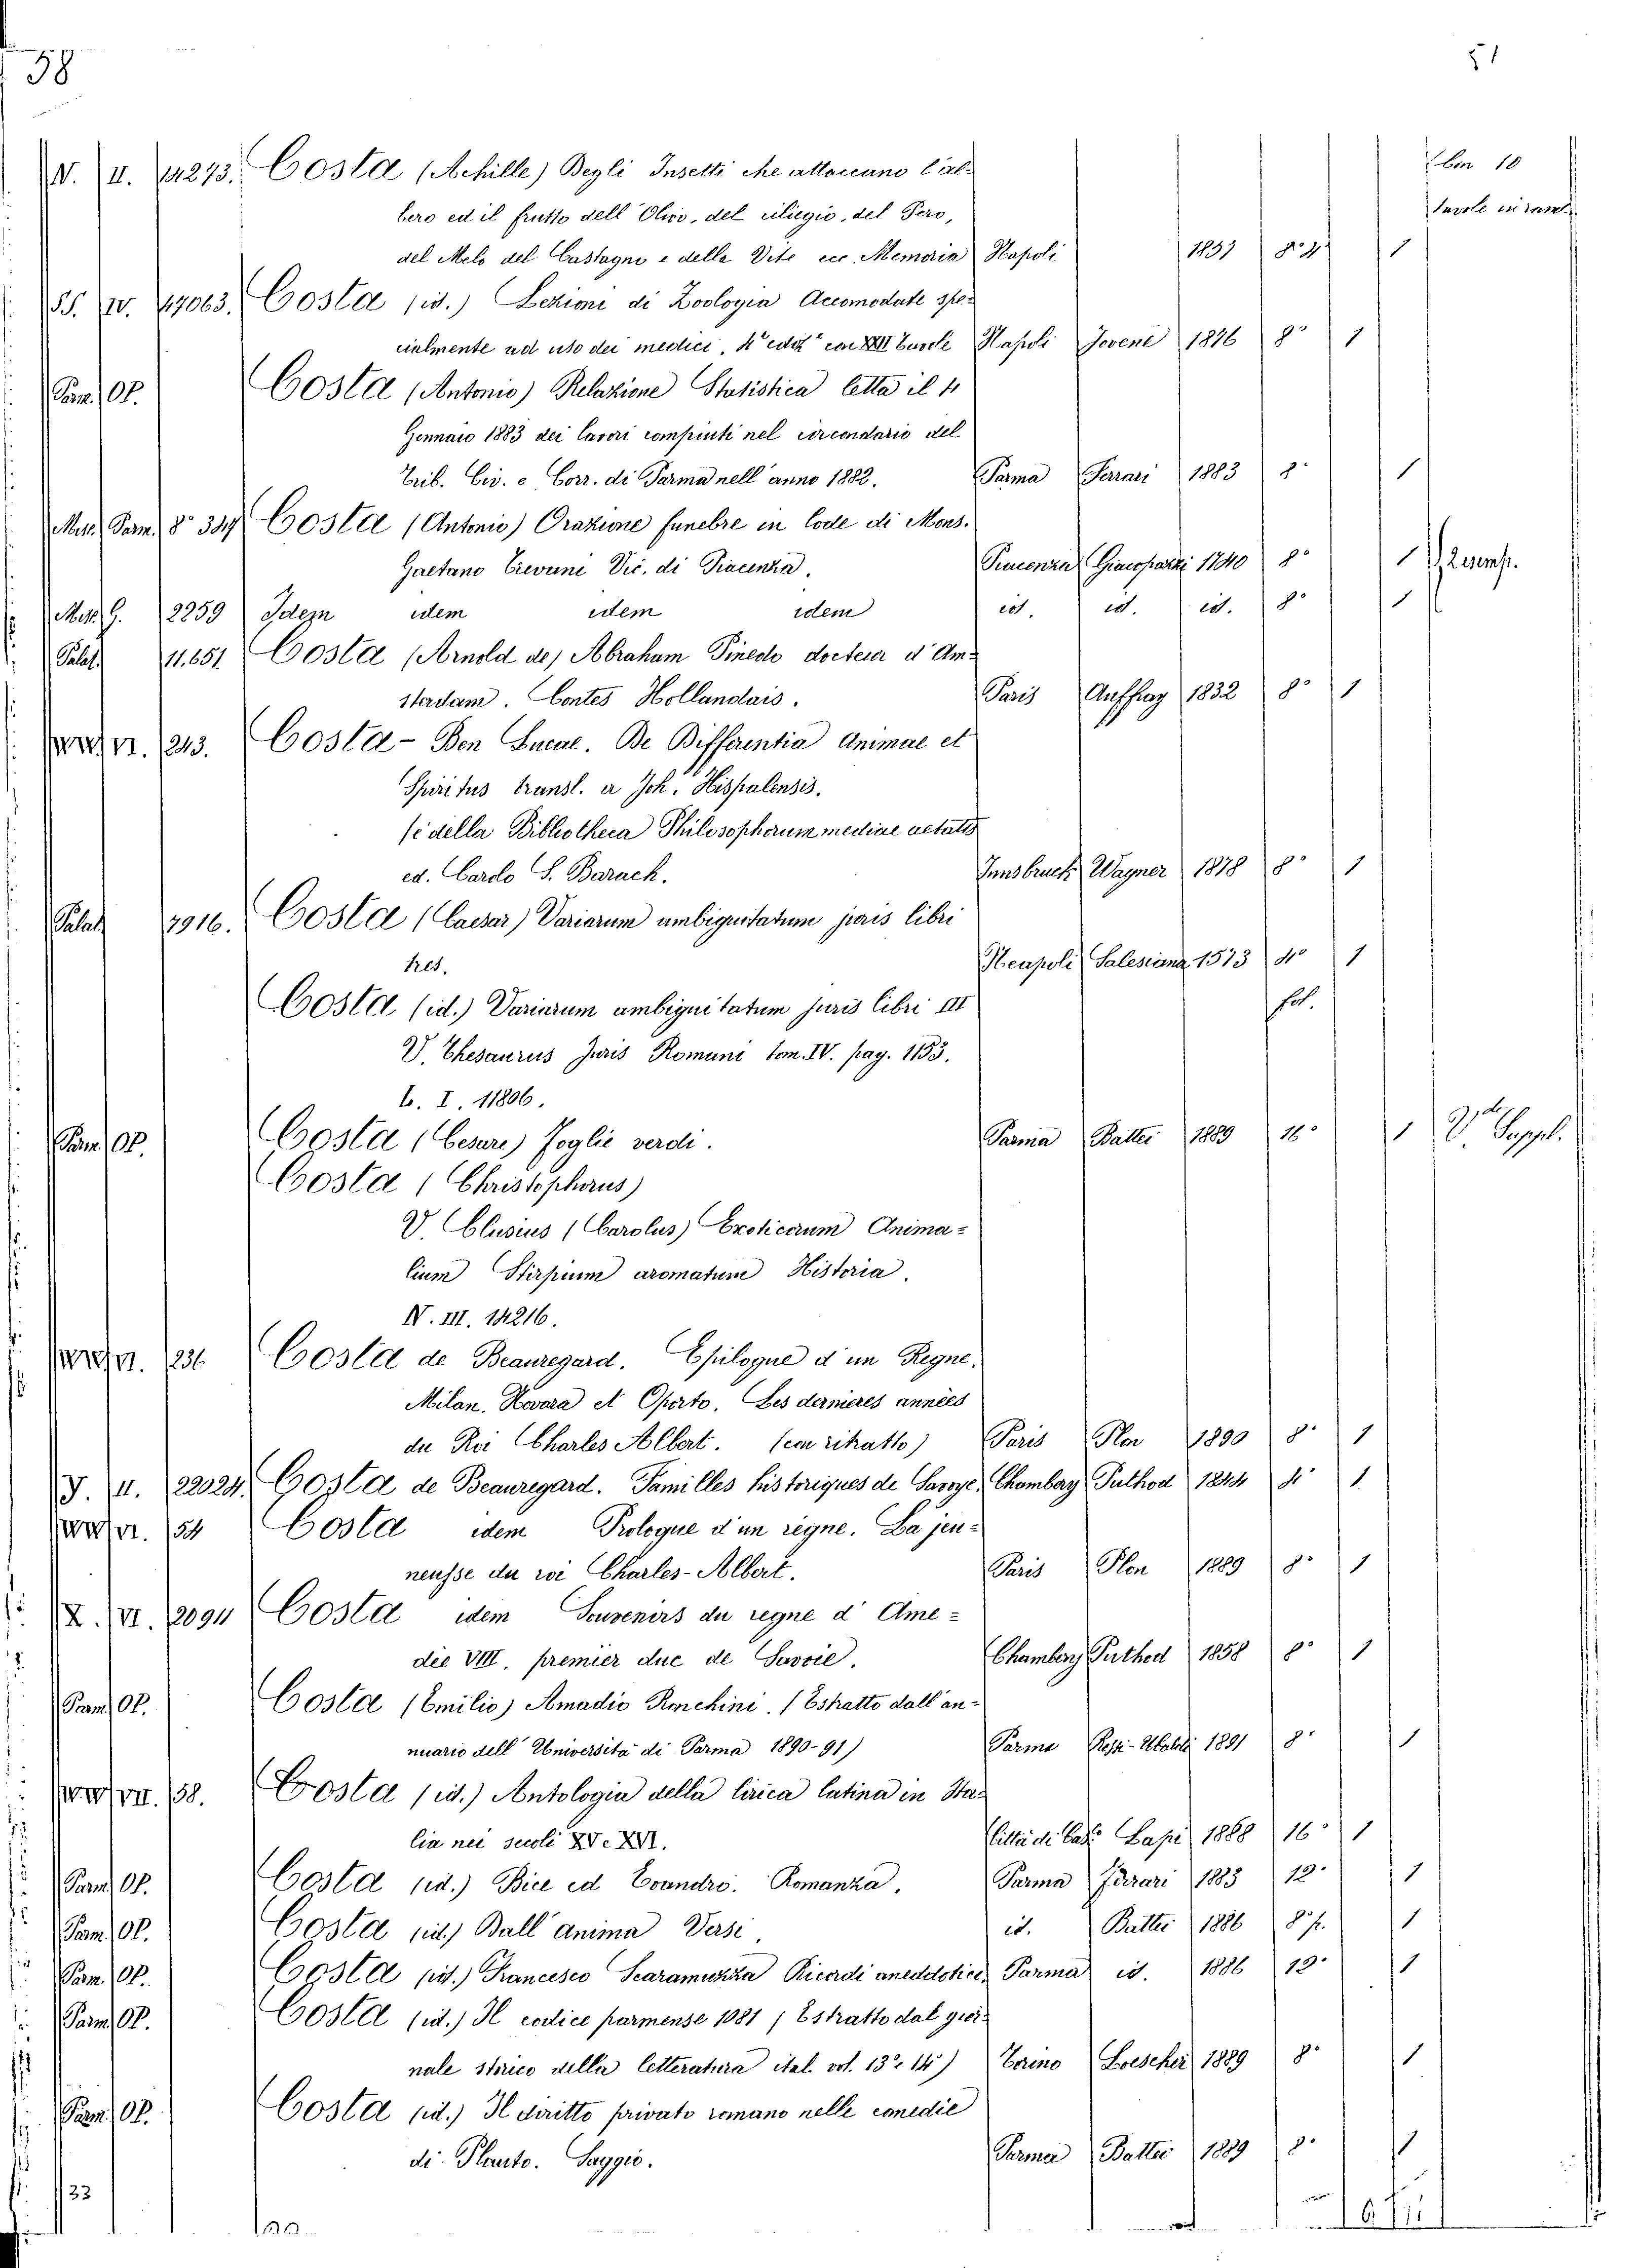 58
51
N. II. 14273. Costa (Achille) Degli Insetti che attaccano l'al=
bero ed il frutto dell'Olivo, del ciliegio, del Pero,
del Melo del Castagno e della Vite ecc. Memoria Napoli 1857 8° 1
Con 10
tavole in rame
SS. IV. 47063. Costa (id.) Lezioni di Zoologia Accomodate spe=
cialmente ad uso dei medici. 4ª ediz. con XXII tavole Napoli Jovene 1876 8° 1
Parm. OP. Costa (Antonio) Relazione Statistica letta il 4
Gennaio 1883 dei lavori compiuti nel circondario del
Trib. Civ. e Corr. di Parma nell'anno 1882. Parma Ferrari 1883 8° 1
Misc. Parm. 8° 347 Costa (Antonio) Orazione funebre in lode di Mons.
Gaetano Crevani Vic. di Piacenza. Piacenza Giacopazzi 1740 8° 1 2 esemp.
Misc. G. 2259 Idem idem idem idem id. id. id. 8° 1
Palat. 11.651 Costa (Arnold de) Abraham Pinedo docteur d'Am=
sterdam. Contes Hollandais. Paris Auffray 1832 8° 1
VI. 243. Costa-Ben Lucae. De Differentia Animae et
Spiritus transl. a Joh. Hispalensis.
(è della Bibliotheca Philosophorum mediae aetatis
ed. Carlo S. Barach. Innsbruck Wagner 1878 8° 1
Palat. 7916. Costa (Caesar) Variarum ambiguitatum juris libri
tres. Neapoli Salesiana 1573 4° 1
Costa (id.) Variarum ambiguitatum juris libri III fol.
V. Thesaurus Juris Romani tom. IV. pag. 1153.
I. 11806.
Parm. OP. Costa (Cesare) Foglie verdi. Parma Battei 1889 16° 1 V. Suppl.
Costa (Christophorus)
V. Clusius (Carolus) Exoticorum Anima=
lium Stirpium aromatum Historia.
N. III. 14216.
VI. 236 Costa de Beauregard. Epilogue d'un Regne.
Milan, Novara et Oporto. Les dernieres années
du Roi Charles Albert. (con ritratto) Paris Plon 1890 8° 1
II. 22024. Costa de Beauregard. Familles historiques de Savoye. Chambery Puthod 1844 4° 1
VI. 54 Costa idem Prologue d'un règne. La jeu=
neusse du roi Charles-Albert. Paris Plon 1889 8° 1
X. VI. 2094 Costa idem Souvenirs du regne d'Ame=
dée VIII, premier duc de Savoie. Chambery Puthod 1858 8° 1
Parm. OP. Costa (Emilio) Amadio Ronchini. (Estratto dall'an=
nuario dell'Università di Parma 1890-91) Parma Rossi-Ubaldi 1891 8° 1
VII. 58. Costa (id.) Antologia della lirica latina in Ita=
lia nei secoli XV e XVI. Città di Cast. Lapi 1888 16° 1
Parm. OP. Costa (id.) Bice ed Evandro. Romanza. Parma Ferrari 1883 12° 1
Parm. OP. Costa (id.) Dall'anima Versi. id. Battei 1886 8° p. 1
Parm. OP. Costa (id.) Francesco Scaramuzza Ricordi aneddotici. Parma id. 1886 12° 1
Parm. OP. Costa (id.) Il codice parmense 1081 (Estratto dal gior=
nale storico della letteratura ital. vol. 13° e 14°) Torino Loescher 1889 8° 1
Parm. OP. Costa (id.) Il diritto privato romano nelle comedie
di Plauto. Saggio. Parma Battei 1889 8° 1
33